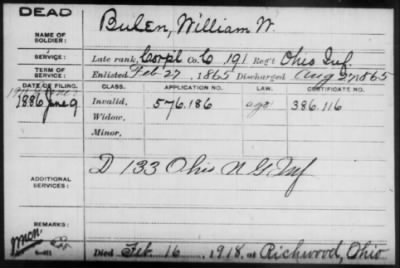 DEAD
NAME OF SOLDIER: Bulen, William W.
SERVICE: Late rank, Corpl Co. C 191 Reg't Ohio Inf.
TERM OF SERVICE: Enlisted Feb 27, 1865 Discharged Aug 27 1865
DATE OF FILING. CLASS. APPLICATION NO. CERTIFICATE NO.
1886 June 9 Invalid, 576.186 386.116
Widow,
Minor,
ADDITIONAL SERVICES: D 133 Ohio N G Inf
REMARKS:
Died Feb. 16, 1918, at Richwood, Ohio